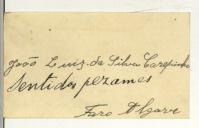 João Luiz da Silva Carepinho
Sentidos pezames
Faro Algarve